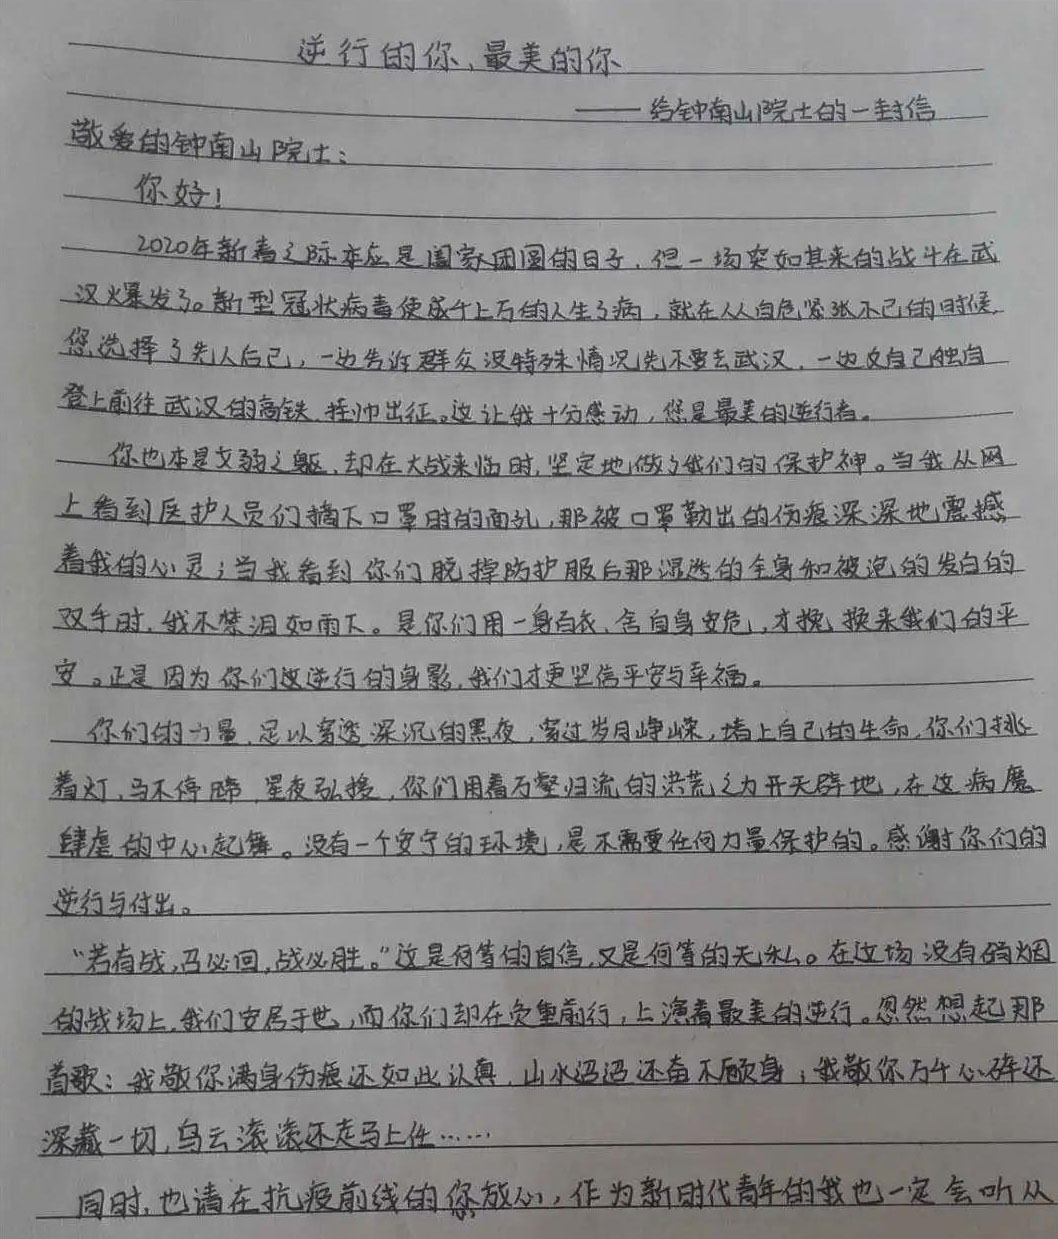 逆行的你、最美的你
——给钟南山院士的一封信
敬爱的钟南山院士:
你好!
2020年新春之际本应是阖家团圆的日子,但一场突如其来的战斗在武
汉爆发了。新型冠状病毒使成千上万的人生了病,就在人人自危紧张不已的时候,
您选择了先人后己,一边告诉群众没特殊情况先不要去武汉,一边又自己独自
登上前往武汉的高铁,挂帅出征。这让我十分感动,您是最美的逆行者。
你也本是文弱之躯,却在大战来临时,坚定地做了我们的保护神。当我从网
上看到医护人员们摘下口罩时的面孔,那被口罩勒出的伤痕深深地震撼
着我的心灵;当我看到你们脱掉防护服后那湿透的全身和被泡的发白的
双手时,我不禁泪如雨下。是你们用一身白衣,舍自身安危,才挽换来我们的平
安。正是因为你们这逆行的身影,我们才更坚信平安与幸福。
你们的力量,足以穿透深沉的黑夜,穿过岁月峥嵘,堵上自己的生命,你们挑
着灯,马不停蹄,星夜弘援,你们用着万壑归流的洪荒之力开天辟地,在这病魔
肆虐的中心起舞。没有一个安宁的环境,是不需要任何力量保护的。感谢你们的
逆行与付出。
“若有战,召必回,战必胜。”这是何等的自信,又是何等的无私。在这场没有硝烟
的战场上,我们安居于世,而你们却在负重前行,上演着最美的逆行。忽然想起那
首歌:我敬你满身伤痕还如此认真,山水迢迢还奋不顾身;我敬你万千心碎还
深藏一切,乌云滚滚还走马上任……
同时,也请在抗疫前线的您放心,作为新时代青年的我也一定会听从